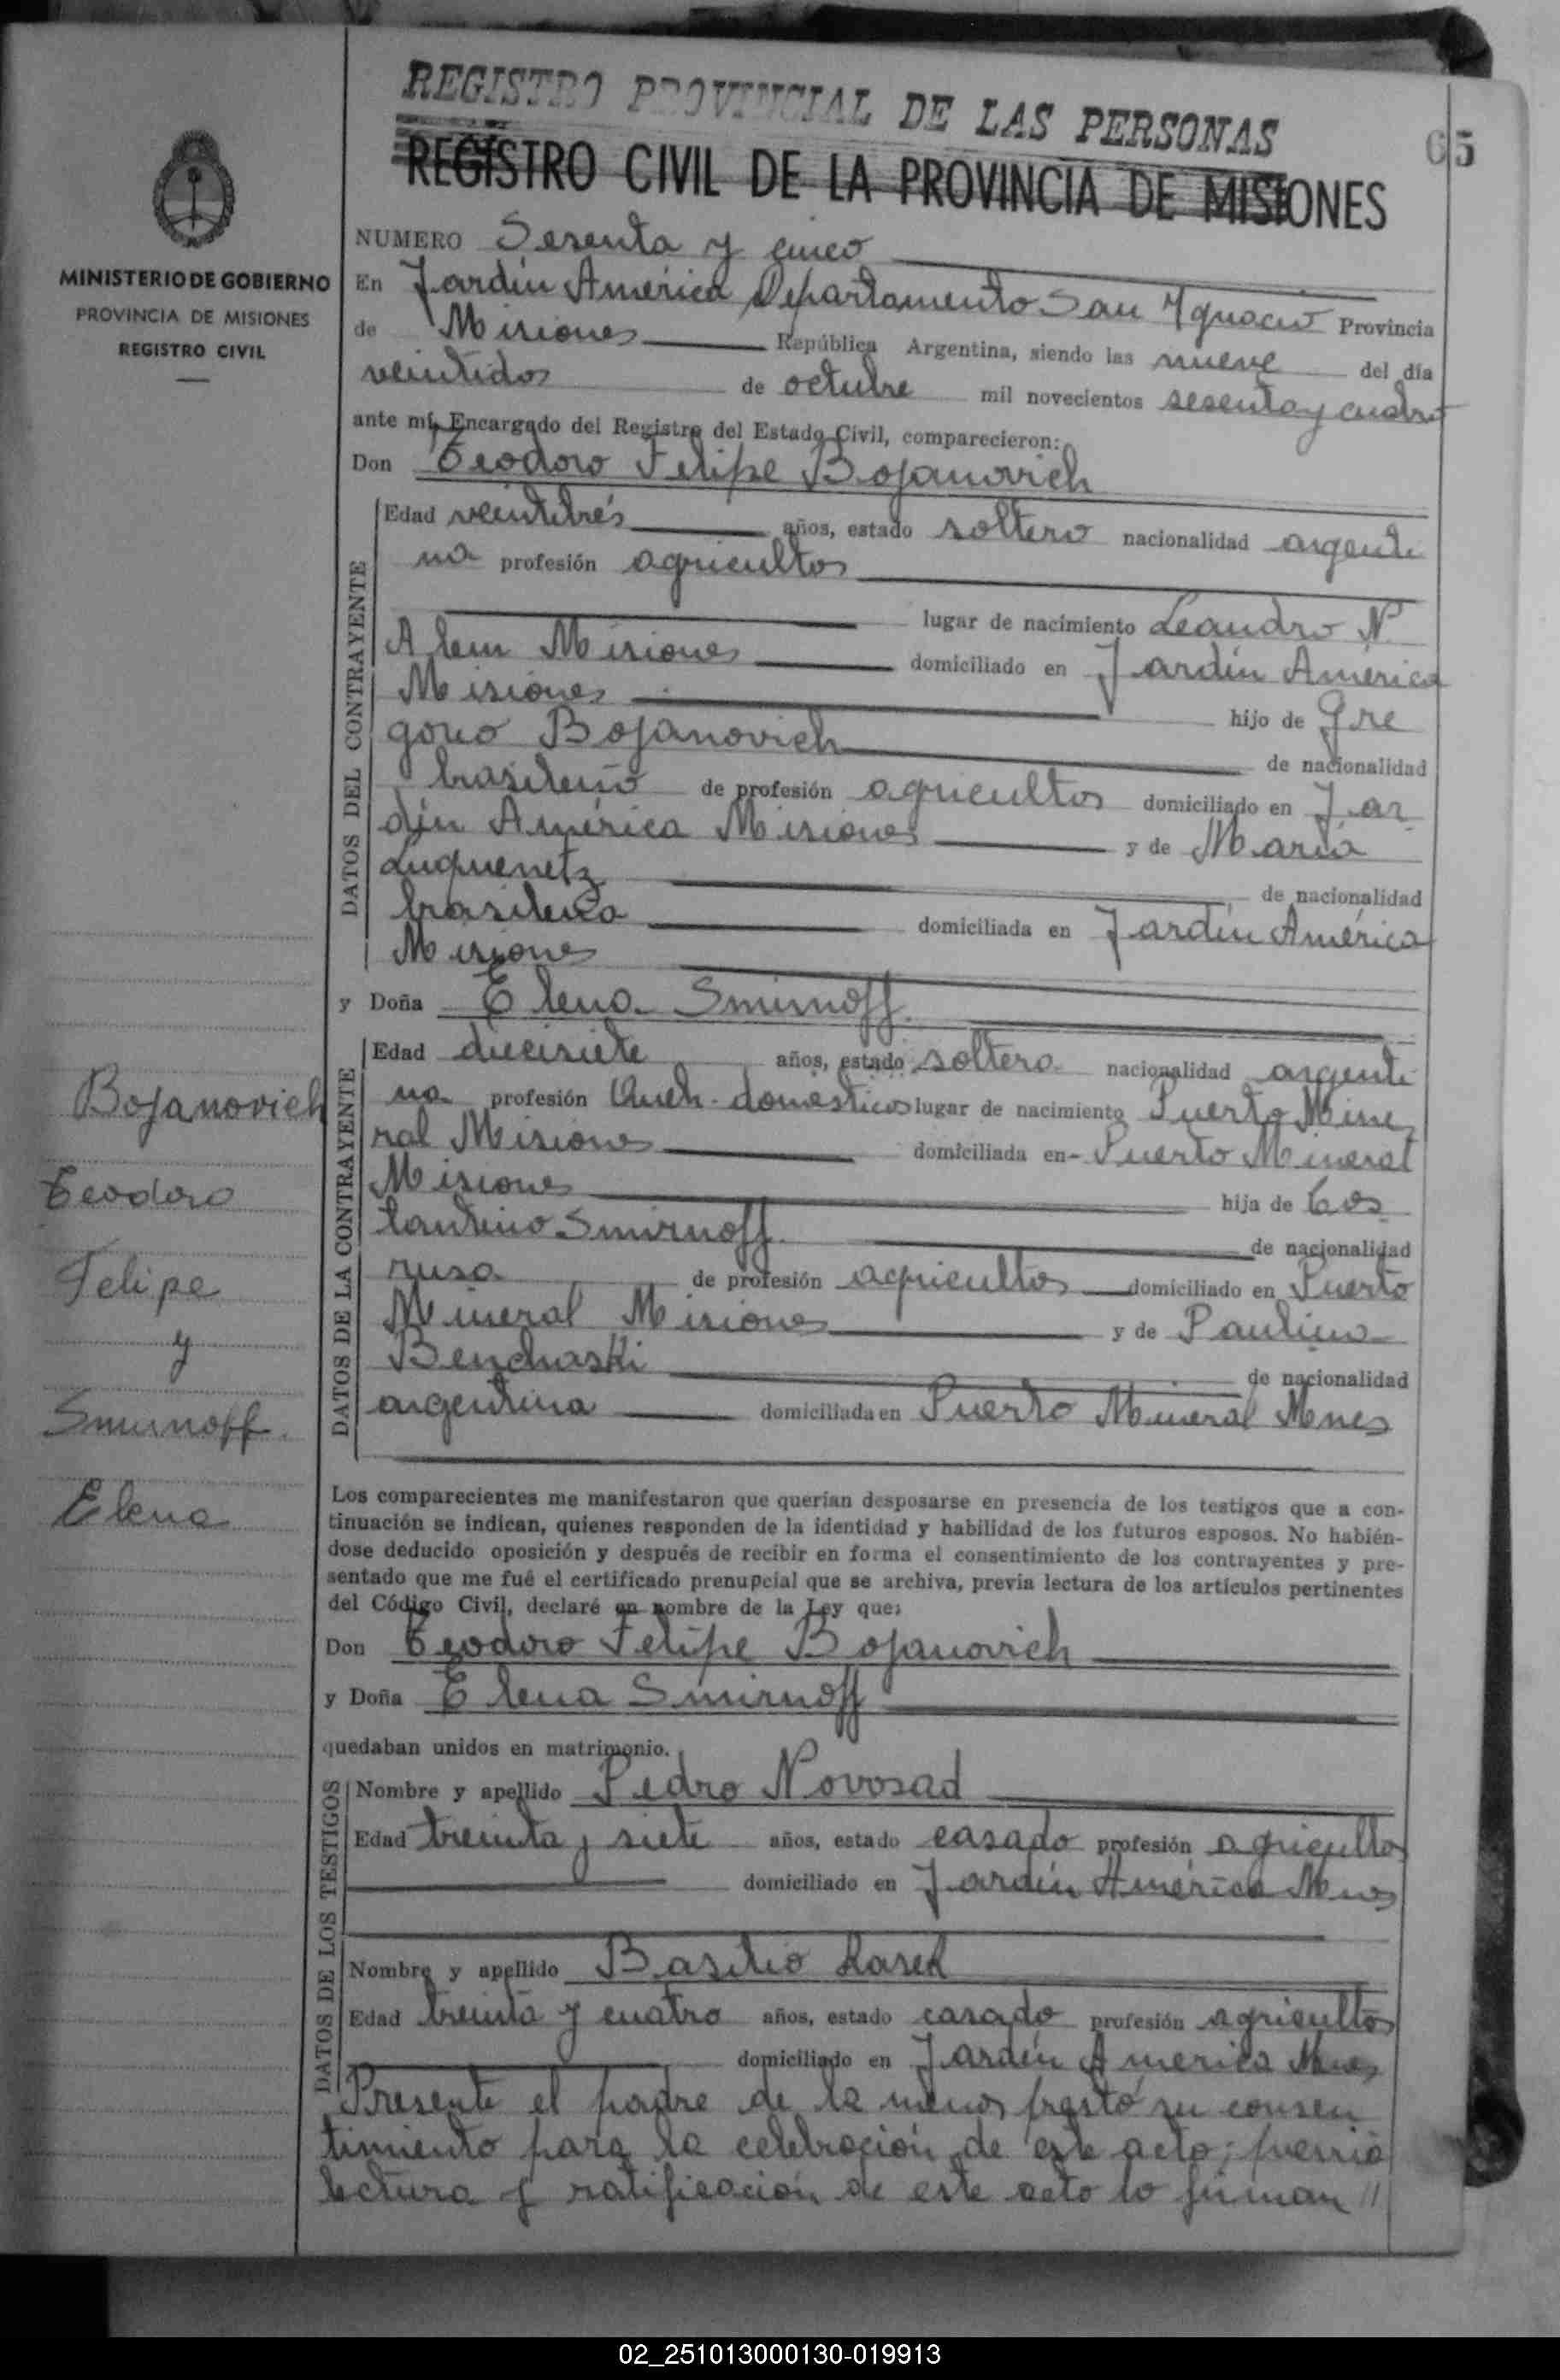 REGISTRO PROVINCIAL DE LAS PERSONAS
65
REGISTRO CIVIL DE LA PROVINCIA DE MISIONES
MINISTERIO DE GOBIERNO
PROVINCIA DE MISIONES
REGISTRO CIVIL
NUMERO Sesenta y cinco
En Jardín América Departamento San Ygnacio Provincia
de Misiones República Argentina, siendo las nueve del día
veintidos de octubre mil novecientos sesenta y cuatro
ante mí, Encargado del Registro del Estado Civil, comparecieron:
Don Teodoro Felipe Bojanovich
DATOS DEL CONTRAYENTE
Edad veintitrés años, estado soltero nacionalidad argenti
na profesión agricultor
lugar de nacimiento Leandro N.
Alem Misiones domiciliado en Jardín América
Misiones hijo de Gre
gorio Bojanovich de nacionalidad
brasileño de profesión agricultor domiciliado en Jar
dín América Misiones y de María
Luquenetz de nacionalidad
brasileña domiciliada en Jardín América
Misiones
y Doña Elena Smirnoff
DATOS DE LA CONTRAYENTE
Edad diecisiete años, estado soltera nacionalidad argenti
na profesión Queh. domésticos lugar de nacimiento Puerto Mine
ral Misiones domiciliada en Puerto Mineral
Misiones hija de Cos
tantino Smirnoff de nacionalidad
rusa de profesión agricultor domiciliado en Puerto
Mineral Misiones y de Paulina
Benchaski de nacionalidad
argentina domiciliada en Puerto Mineral Mnes
Bojanovich
Teodoro
Felipe
y
Smirnoff.
Elena
Los comparecientes me manifestaron que querían desposarse en presencia de los testigos que a con-
tinuación se indican, quienes responden de la identidad y habilidad de los futuros esposos. No habién-
dose deducido oposición y después de recibir en forma el consentimiento de los contrayentes y pre-
sentado que me fué el certificado prenupcial que se archiva, previa lectura de los artículos pertinentes
del Código Civil, declaré en nombre de la Ley que:
Don Teodoro Felipe Bojanovich
y Doña Elena Smirnoff
quedaban unidos en matrimonio.
DATOS DE LOS TESTIGOS
Nombre y apellido Pedro Novosad
Edad treinta y siete años, estado casado profesión agricultor
domiciliado en Jardín América Mnes
Nombre y apellido Basilio Kasek
Edad treinta y cuatro años, estado casado profesión agricultor
domiciliado en Jardín América Mnes
Presente el padre de la menor prestó su consen
timiento para la celebración de este acto; previa
lectura y ratificación de este acto lo firman //
02_251013000130-019913